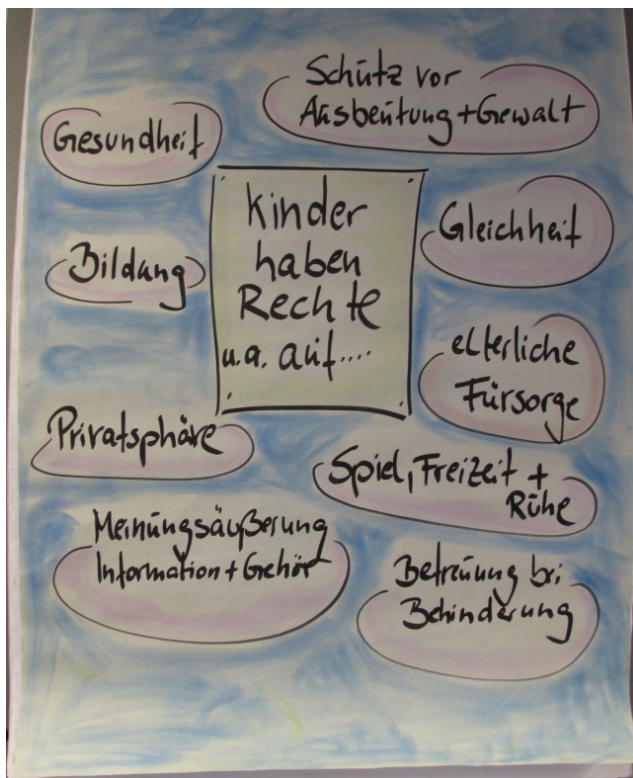 Schutz vor
Ausbeutung + Gewalt
Gesundheit
Kinder
haben
Rechte
u.a. auf....
Gleichheit
Bildung
elterliche
Fürsorge
Privatsphäre
Spiel, Freizeit +
Ruhe
Meinungsäußerung
Information + Gehör
Betreuung bei
Behinderung